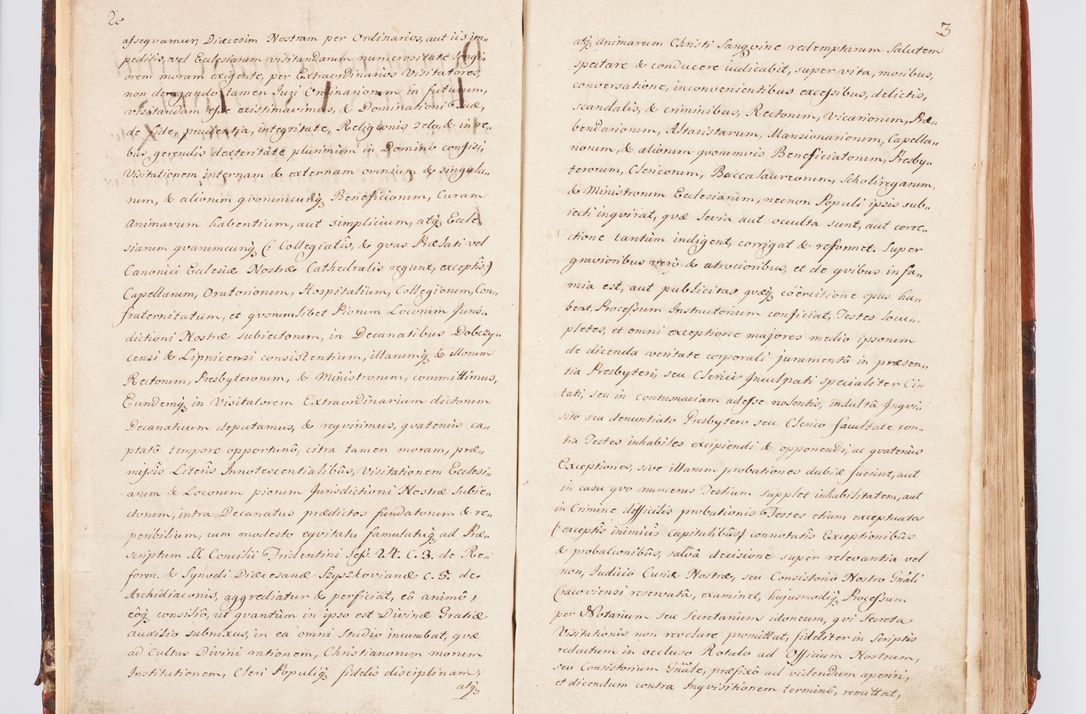 2
assequamur, Diœcesim Nostram per Ordinarios, aut iis im-
peditis, vel Ecclesiarum visitandarum numerositate longi-
orem moram exigente, per Extraordinarios Visitatores,
non derogando tamen Juri Ordinariorum in futurum,
visitandam esse existimavimus, & Dominationi Suæ,
de fide, prudentia, integritate, Religionis zelo, & in re-
bus gerendis dexteritate plurimum in Domino confisi,
Visitationem internam & externam omnium & singulo-
rum, & aliorum quorumcunq; Beneficiorum, Curam
Animarum habentium, aut simplicium, atq; Eccle-
siarum quarumcunq; (: Collegiatis, & quas Prælati vel
Canonici Ecclesiæ Nostræ Cathedralis regunt, exceptis:)
Capellarum, Oratoriorum, Hospitalium, Collegiorum, Con-
fraternitatum, et quorumlibet Piorum Locorum Juris-
dictioni Nostræ subiectorum, in Decanatibus Dobczy-
censi & Lipnicensi consistentium, illarumq; & illorum
Rectorum, Presbyterorum, & Ministrorum, committimus,
Eundemq; in Visitatorem Extraordinarium dictorum
Decanatuum deputamus, & requirimus, quatenus ca-
ptatô tempore opportunô, citra tamen moram, præ-
missis Literis Innotescentialibus, Visitationem Ecclesi-
arum & Locorum piorum Jurisdictioni Nostræ Subie-
ctorum, intra Decanatus prædictos fundatorum & re-
peribilium, cum modesto equitatu famulatuq; ad Præ-
scriptum S. Concilii Tridentini Sess: 24. C. 3. de Re-
form. & Synodi Diæcesanæ Szyszkovianæ C. 5. de
Archidiaconis, aggrediatur & perficiat, eô animô,
eôq; consiliô, ut quantum in ipso est Divinæ Gratiæ
auxilio subnixus, in ea omni studio incumbat, quæ
ad Cultus Divini rationem, Christianorum morum
Institutionem, Cleri Populiq; fidelis disciplinam,
atq;
3
atq; animarum Christi Sanguine redemptarum Salutem
spectare & conducere iudicabit, super vita, moribus,
conversatione, inconvenientibus excessibus, delictis,
scandalis, & criminibus, Rectorum, Vicariorum, Præ-
bendariorum, Altaristarum, Mansionariorum, Capella-
norum, & aliorum quorumvis Beneficiatorum, Presby-
terorum, Clericorum, Baccalaureorum, Scholiregarum,
& Ministrorum Ecclesiarum, necnon Populi ipsis sub-
iecti inquirat, quæ Seria aut occulta sunt, aut corre-
ctione tantùm indigent, corrigat & reformet. Super
gravioribus verò & atrocioribus, et de quibus in fa-
mia est, aut publicitas quæq; coërcitione opus ha-
bent, Processum Instructorium conficiat, Testes locu-
pletes, et omni exceptione majores medio ipsorum
de dicenda veritate corporali juramentô in præsen-
tia Presbyteri, seu Clerici Inculpati specialiter Ci-
tati, seu in contumaciam adesse nolentis, indultâ Inqui-
sito seu denuntiato Presbytero seu Clerico facultate con-
tra Testes inhabiles excipiendi & opponendi, ac quatenus
Exceptiones, sive illarum probationes dubiæ fuerint, aut
in casu quo numerus Testium supplet inhabilitatem, aut
in Crimine difficilis probationis Testes etiam exceptuatos
(exceptis inimicis Capitalibus) connotatis Exceptionibus
& probationibus, salvâ decisione super relevantia vel
non, Judicio Curiæ Nostræ, seu Consistorio Nostro Gnâli
Cracoviensi reservatâ, examinet, hujusmodiq; Processum
per Notarium seu Secretarium idoneum, qui Secreta
Visitationis non revelare promittat, fideliter in Scriptis
redactum in occluso Rotulo ad Officium Nostrum,
seu Consistorium Gnâle, præfixô ad videndum aperiri,
et dicendum contra Inquisitionem terminô, remittat,